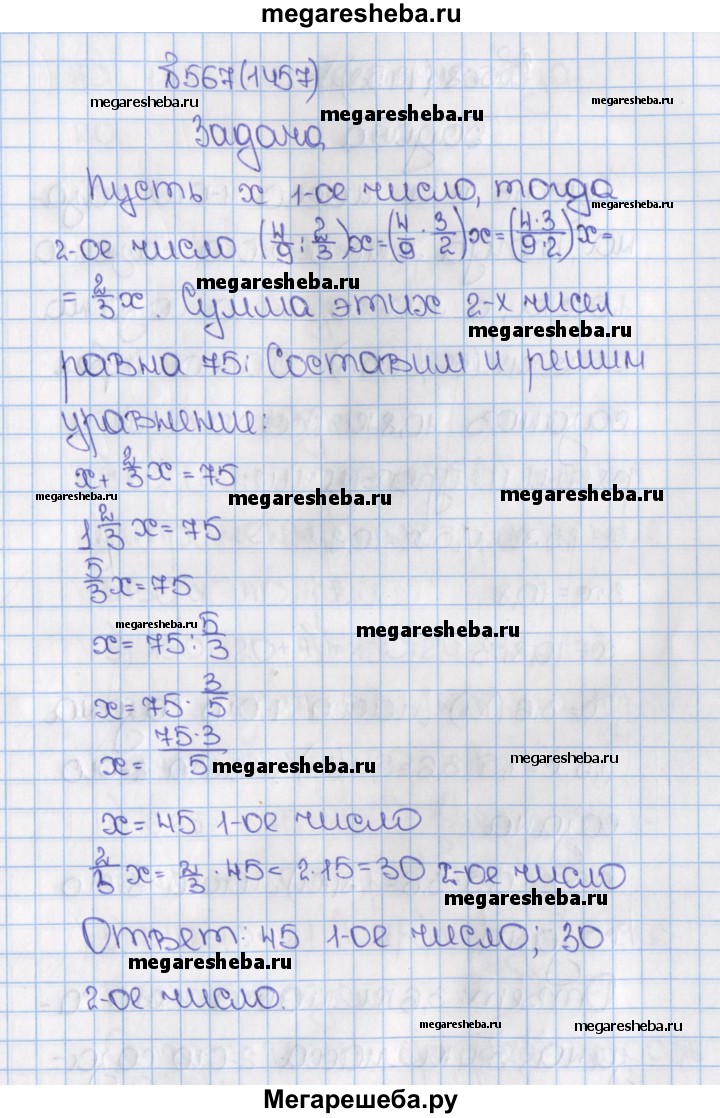 megaresheba.ru
№567(1457)
megaresheba.ru
megaresheba.ru
Задача
Пусть x 1-ое число, тогда
megaresheba.ru
2-ое число (4/9 : 2/3)x=(4/9 · 3/2)x=(4·3/9·2)x=
megaresheba.ru
= 2/3 x. Сумма этих 2-х чисел
megaresheba.ru
равна 75: Составим и решим
уравнение:
x+ 2/3 x = 75
megaresheba.ru
megaresheba.ru
megaresheba.ru
1 2/3 x = 75
5/3 x = 75
megaresheba.ru
megaresheba.ru
x = 75 : 5/3
x = 75 · 3/5
x = 75·3/5
megaresheba.ru
megaresheba.ru
x = 45 1-ое число
2/3 x = 2/3 · 45 = 2·15 = 30 2-ое число
megaresheba.ru
Ответ: 45 1-ое число; 30
megaresheba.ru
2-ое число.
megaresheba.ru
megaresheba.ru
Мегарешеба.ру